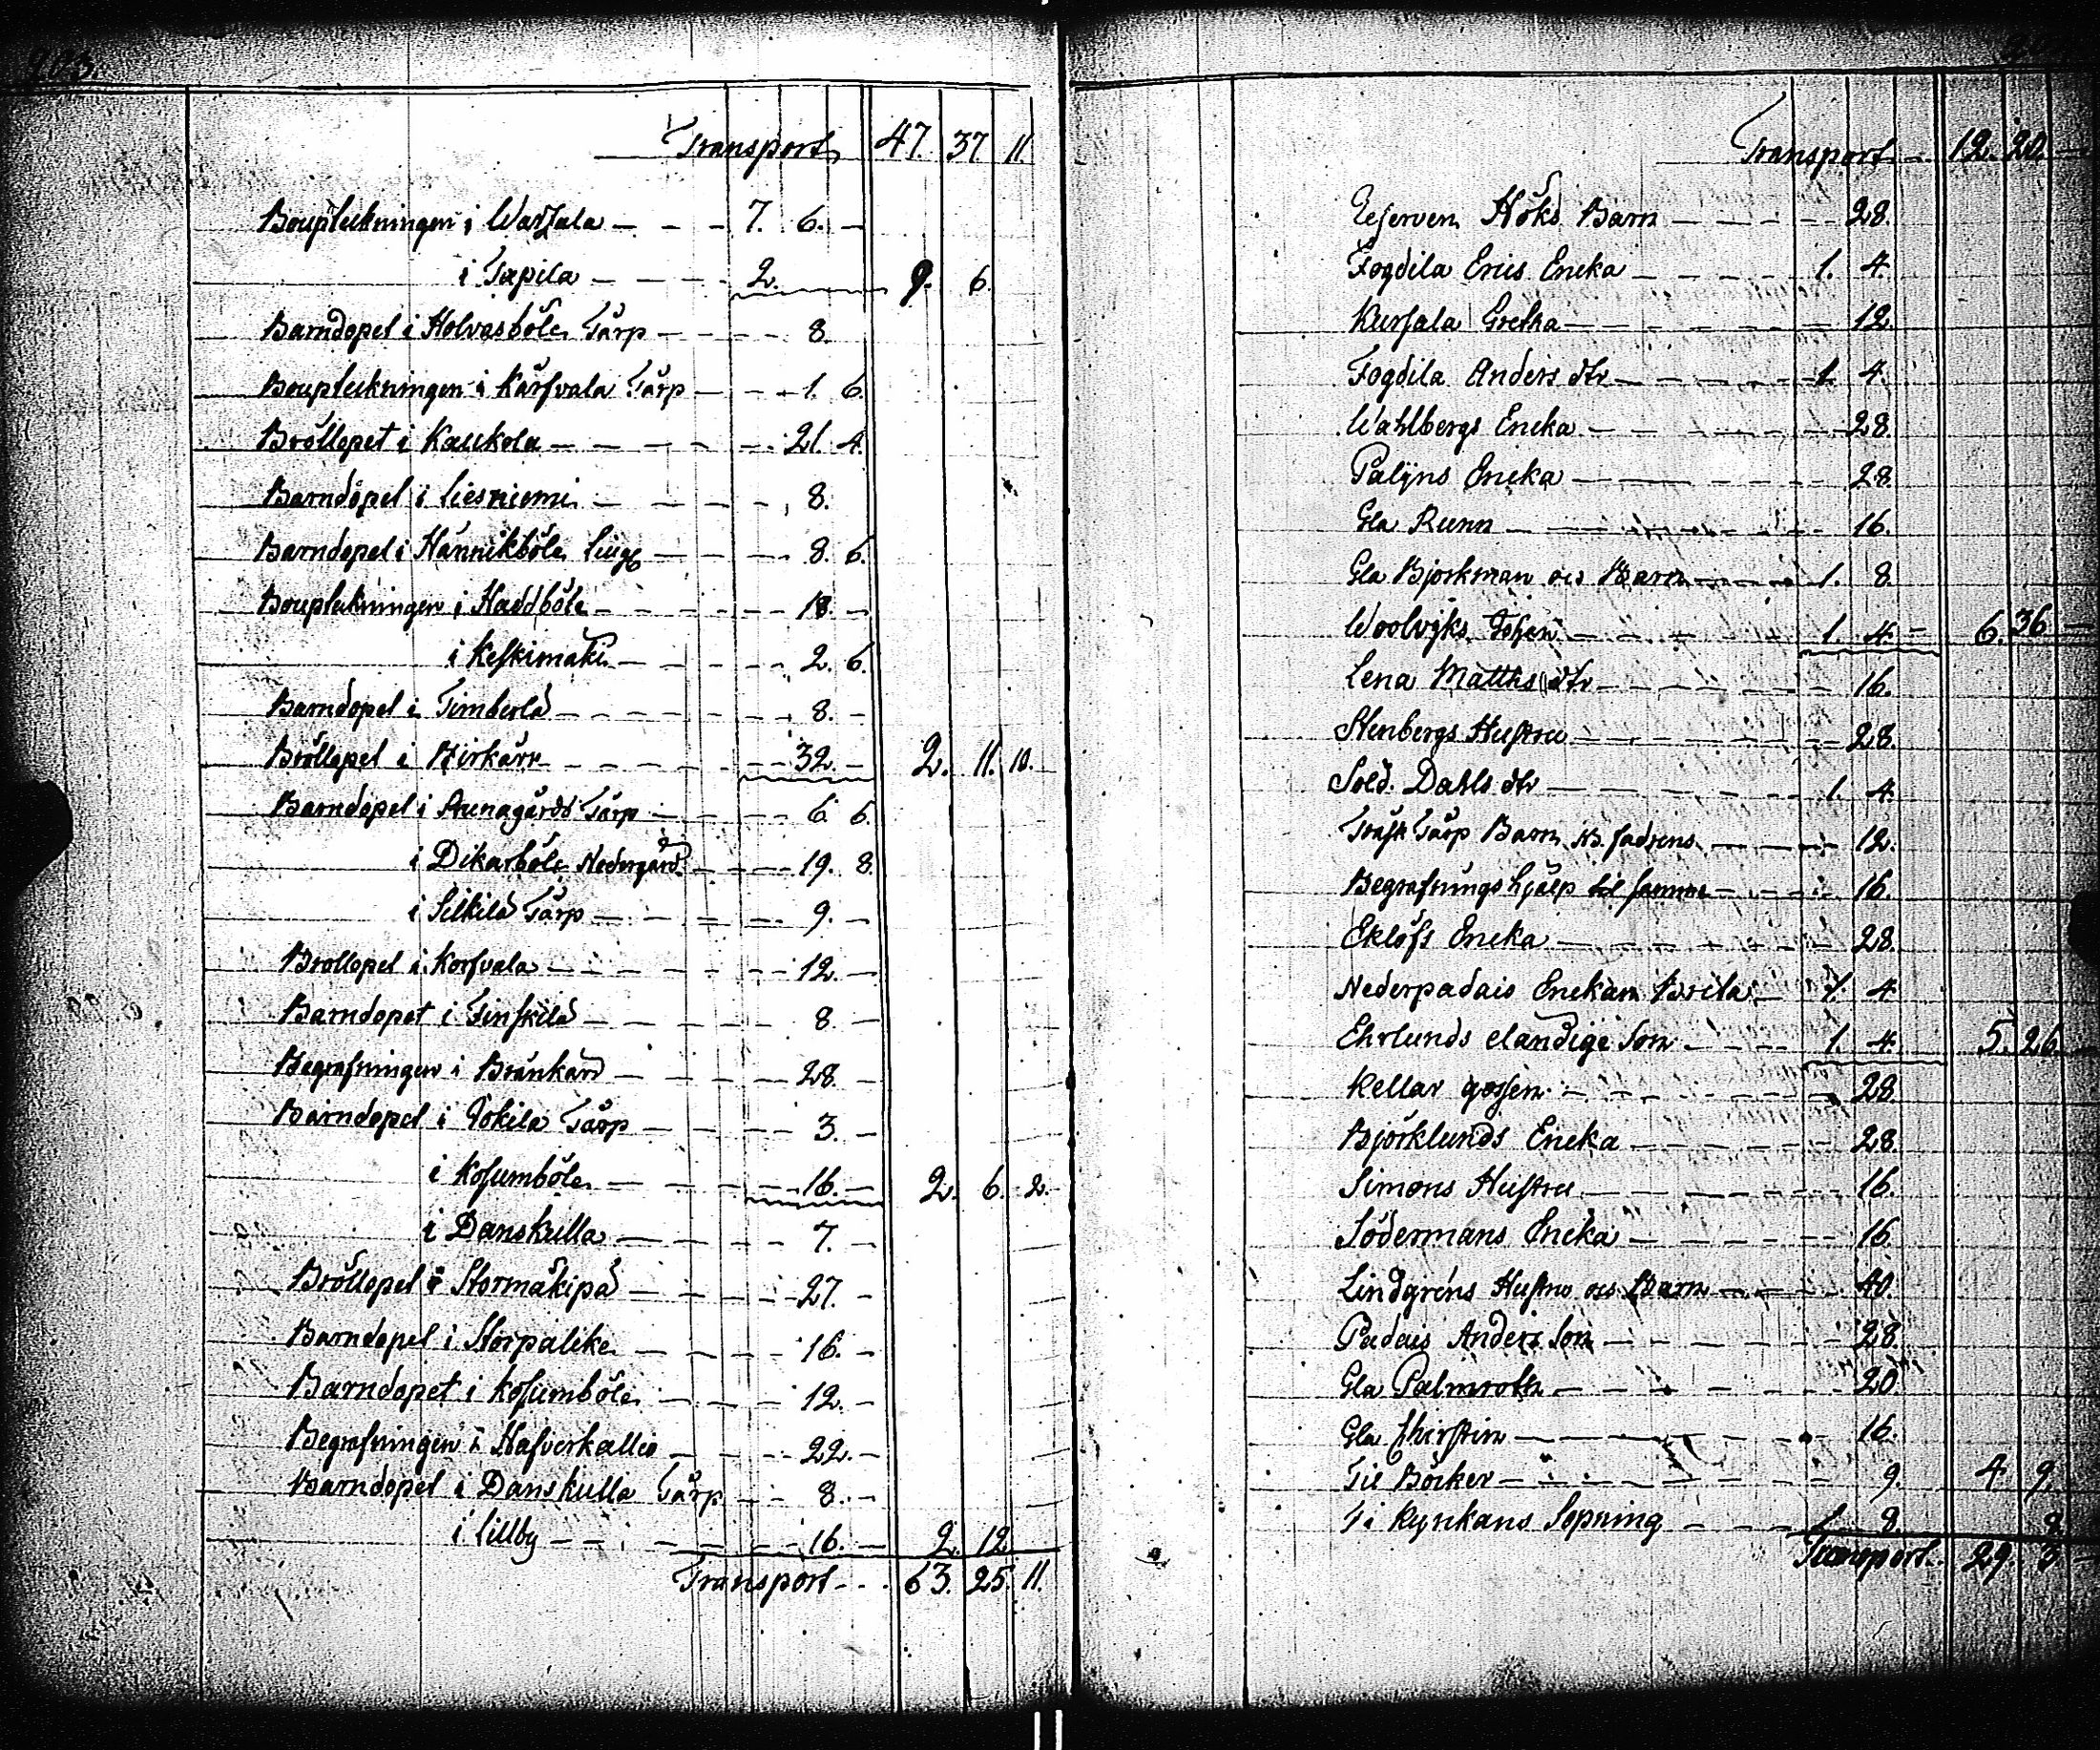 203.
Transport 47. 37 11
Boupteckningen i Warfala - - - 7. 6. -
i Tapila - - - 2. 9. 6.
Barndopet i Holvasböle Tårp - - - 8.
Boupteckningen i Karfvala Tårp - - - 1. 6.
Bröllopet i Kaukola - - - 21. 4.
Barndopet i Liesniemi - - - 8.
Barndopet i Hannikböle - - - 8. 6.
Boupteckningen i Haddböle - - - 18. -
i Keskimäki - - - 2. 6.
Barndopet i Timberlä - - - 8. -
Bröllopet i Birkärr - - - 32. - 2. 11. 10.
Barndopet i Tårp - - - 6. 6.
i Dikarböle Nedergård - - - 19. 8.
i Silkilä Tårp - - - 9. -
Bröllopet i Korfvala - - - 12. -
Barndopet i Finskilä - - - 8. -
Begrafningen i Brankärr - - - 28. -
Barndopet i Tokila Tårp - - - 3. -
i Kosumböle - - - 16. - 2. 6. 2.
i Danskulla - - - 7. -
Bröllopet i Stormäkipä - - - 27. -
Barndopet i Storpalike - - - 16. -
Barndopet i Kosumböle - - - 12. -
Begrafningen i Hafverkallio - - - 22. -
Barndopet i Danskulla Tårp - - 8. -
i Lillby - - - 16. - 2. 12.
Transport - - . 63. 25. 11.
Transport - 12. 20. -
Höks Barn - - - 28.
Fogdila Erics Encka - - - 1. 4.
Kursala Gretha - - - 12.
Fogdila Anders dtr - - - 1. 4.
Wahlbergs Encka - - - 28.
Palijns Encka - - - 28.
Gla Runn - - - 16.
Gla Bjorkman ocs Barn - - - 1. 8.
Woolvijks - - - 1. 4. - 6. 36 -
Lena Matths dtr - - - 16.
Stenbergs Hustru - - - 28.
Sold. Dahls dtr - - - 1. 4.
Träsk Tårp Barn - - - 12.
Begrafnings hjälp til samma - - - 16.
Eklöfs Encka - - - 28.
Nederpadais Enckan Brita - 1. 4.
Ehrlunds elandige Son - - - 1. 4. 5. 26.
Kellar gossen - - - 28.
Björklunds Encka - - - 28.
Simons Hustru - - - 16.
Södermans Encka - - - 16.
Lindgréns Hustru ocs Barn - - - 40.
Padais Anders Son - - - 28.
Gla Palmroth - - - 20.
Gla Chirstin - - - 16.
Til Böcker - - - 9. 4. 9.
Kyrkans Sopning - - - 8. 8.
Transport. 29. 3. -